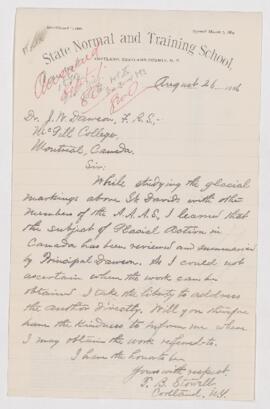 State Normal and Training School,
CORTLAND, CORTLAND COUNTY, N. Y.
August 26, 1886
Dr. J. W. Dawson, F.R.S.,-
McGill College,
Montreal, Canada.
Sir:
While studying the glacial
markings above St Davids with other
members of the A.A.A.S, I learned that
the subject of Glacial Action in
Canada has been reviewed and summarised
by Principal Dawson. As I could not
ascertain where the work can be
obtained I take the liberty to address
the author directly. Will you therefore
have the kindness to inform me where
I may obtain the work referred to.
I have the honor to be
Yours with respect,
T. B. Stowell,
Cortland, N.Y.